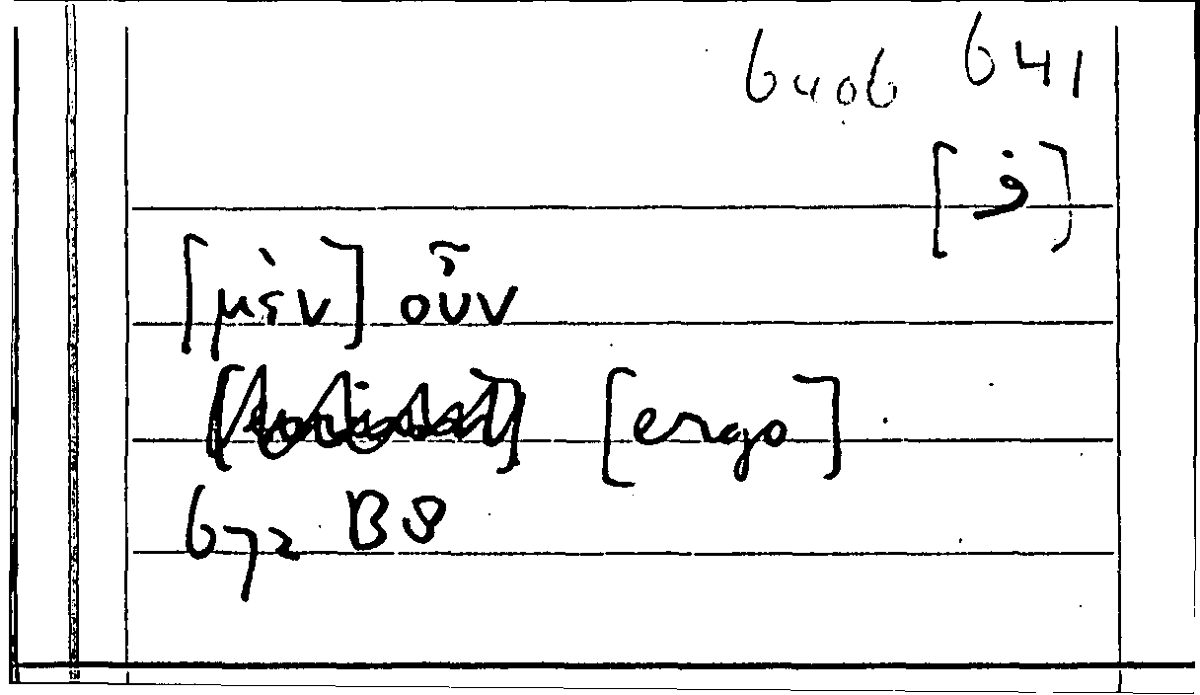 640b 641
[ف]
[μὲν] οὖν
[ergo]
672 B8